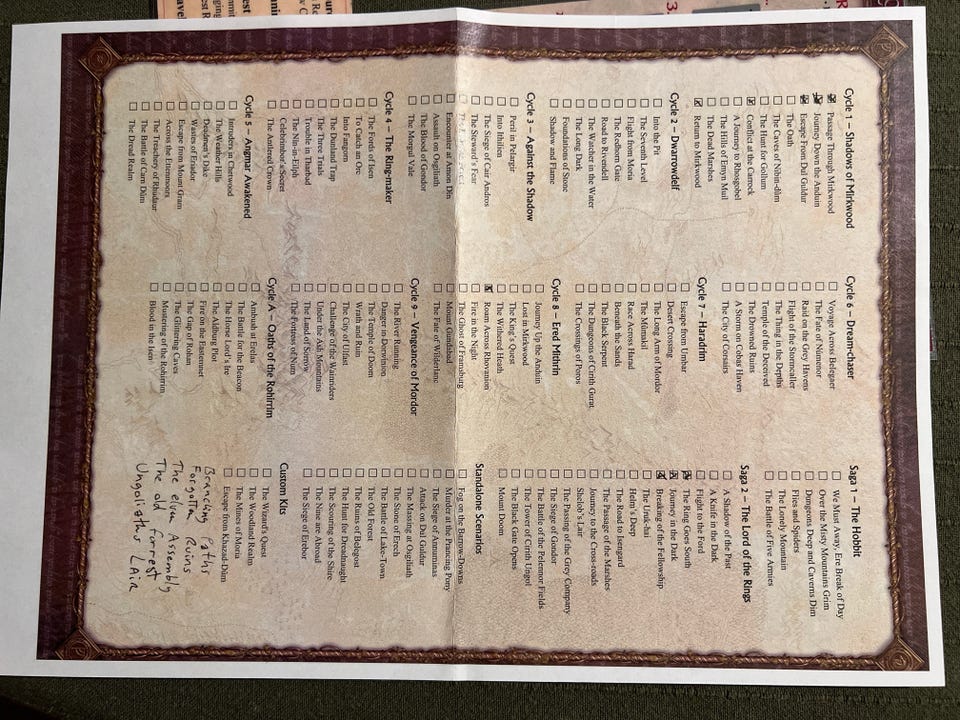 Cycle 1 – Shadows of Mirkwood
Passage Through Mirkwood
Journey Down the Anduin
Escape From Dul Guldur
The Oath
The Caves of Nibin-dûm
The Hunt for Gollum
Conflict at the Carrock
A Journey to Rhosgobel
The Hills of Emyn Muil
The Dead Marshes
Return to Mirkwood
Cycle 2 – Dwarrowdelf
Into the Pit
The Seventh Level
Flight from Moria
The Redhorn Gate
Road to Rivendell
The Watcher in the Water
The Long Dark
Foundations of Stone
Shadow and Flame
Cycle 3 – Against the Shadow
Peril in Pelargir
Into Ithilien
The Siege of Cair Andros
The Steward's Fear
Encounter at Amon Dîn
Assault on Osgiliath
The Blood of Gondor
The Morgul Vale
Cycle 4 – The Ring-maker
The Fords of Isen
To Catch an Orc
Into Fangorn
The Dunland Trap
The Three Trials
Trouble in Tharbad
The Nîn-in-Eilph
Celebrimbor's Secret
The Antlered Crown
Cycle 5 – Angmar Awakened
Intruders in Chetwood
The Weather Hills
Deadmen's Dike
Wastes of Eriador
Escape from Mount Gram
Across the Ettenmoors
The Treachery of Rhudaur
The Battle of Carn Dûm
The Dread Realm
Cycle 6 – Dream-chaser
Voyage Across Belegaer
The Fate of Númenor
Raid on the Grey Havens
Flight of the Stormcaller
The Thing in the Depths
Temple of the Deceived
The Drowned Ruins
A Storm on Cobas Haven
The City of Corsairs
Cycle 7 – Haradrim
Escape from Umbar
Desert Crossing
The Long Arm of Mordor
The Mûmakil
Race Across Harad
Beneath the Sands
The Black Serpent
The Dungeons of Cirith Gurat
The Crossings of Poros
Cycle 8 – Ered Mithrin
Journey Up the Anduin
Lost in Mirkwood
The King's Quest
The Withered Heath
Roam Across Rhovanion
Fire in the Night
The Ghost of Framsburg
Mount Gundabad
The Fate of Wilderland
Cycle 9 – Vengeance of Mordor
The River Running
Danger in Dorwinion
The Temple of Doom
Wrath and Ruin
The City of Ulfast
Challenge of the Wainriders
Under the Ash Mountains
The Land of Sorrow
The Fortress of Nurn
Cycle A – Oaths of the Rohirrim
Ambush at Erelas
The Battle for the Beacon
The Horse Lord's Ire
The Aldburg Plot
Fire on the Eastemnet
The Gap of Rohan
The Glittering Caves
Mustering of the Rohirrim
Blood in the Isen
Saga 1 – The Hobbit
We Must Away, Ere Break of Day
Over the Misty Mountains Grim
Dungeons Deep and Caverns Dim
Flies and Spiders
The Lonely Mountain
The Battle of Five Armies
Saga 2 – The Lord of the Rings
A Shadow of the Past
A Knife in the Dark
Flight to the Ford
The Ring Goes South
Journey in the Dark
Breaking of the Fellowship
The Uruk-hai
Helm's Deep
The Road to Isengard
The Passage of the Marshes
Journey to the Cross-roads
Shelob's Lair
The Passing of the Grey Company
The Siege of Gondor
The Battle of the Pelennor Fields
The Tower of Cirith Ungol
The Black Gate Opens
Mount Doom
Standalone Scenarios
Fog on the Barrow-Downs
Murder at the Prancing Pony
The Siege of Annuminas
Attack on Dol Guldur
The Massing at Osgiliath
The Stone of Erech
The Battle of Lake-Town
The Old Forest
The Ruins of Belegost
The Hunt for Dreadnaught
The Scouring of the Shire
The Nine are Abroad
The Siege of Erebor
Custom Kits
The Wizard's Quest
The Woodland Realm
The Mines of Moria
Escape from Khazad-Dûm
Branching Paths
Forgotten Ruins
The elven Assembly
The old forrest
Ungoliaths Lair